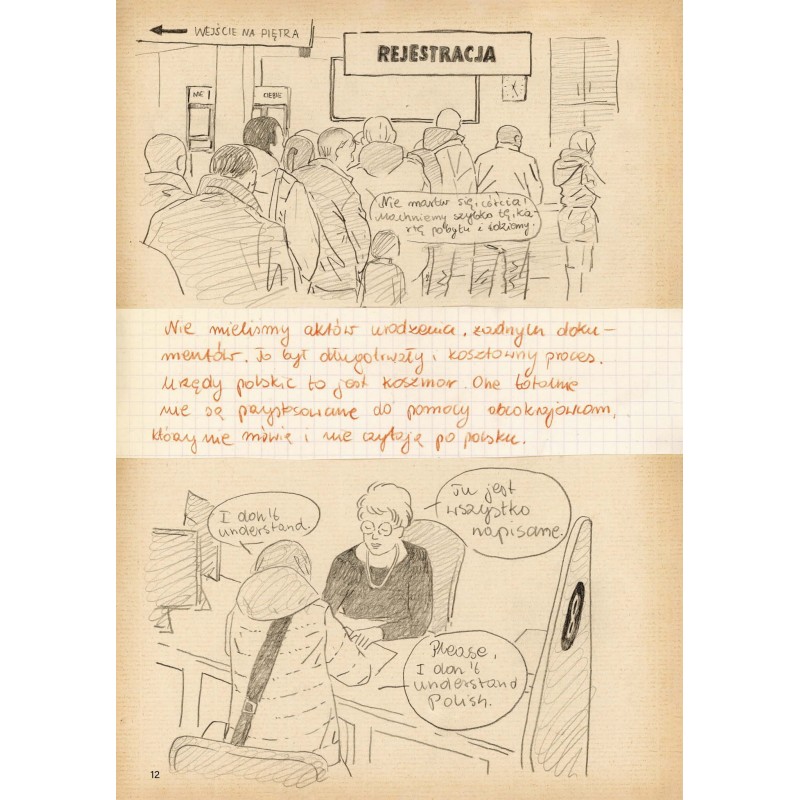 WEJŚCIE NA PIĘTRA
REJESTRACJA
Nie martw się, córcia!
Machniemy szybko tę ka-
rtę pobytu i idziemy.
Nie mieliśmy aktów urodzenia, żadnych doku-
mentów. To był długotrwały i kosztowny proces.
Urzędy polskie to jest koszmar. One totalnie
nie są przystosowane do pomocy obcokrajowcom,
którzy nie mówią i nie czytają po polsku.
I don't
understand.
Tu jest
wszystko
napisane.
8
Please,
I don't
understand
Polish.
12